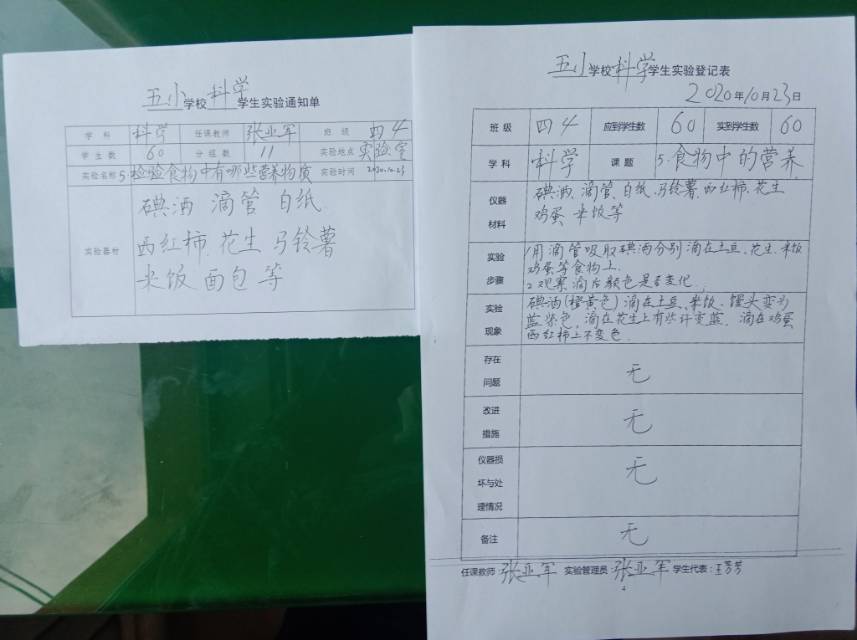 五小学校科学学生实验通知单
学科 科学 任课教师 张亚军 班级 四4
学生数 60 分组数 11 实验地点 实验室
实验名称 5.检验食物中有哪些营养物质 实验时间 2020.10.23
实验器材
碘酒 滴管 白纸
西红柿 花生 马铃薯
米饭 面包 等
五小学校科学学生实验登记表
2020年10月23日
班级 四4 应到学生数 60 实到学生数 60
学科 科学 课题 5.食物中的营养
仪器材料
碘酒、滴管、白纸、马铃薯、西红柿、花生
鸡蛋 米饭等
实验步骤
1用滴管吸取碘酒分别滴在土豆、花生、米饭
鸡蛋等食物上.
2.观察滴后颜色是否变化.
实验现象
碘酒(橙黄色)滴在土豆、米饭、馒头变为
蓝紫色,滴在花生上有些许变蓝.滴在鸡蛋
西红柿上不变色.
存在问题 无
改进措施 无
仪器损坏与处理情况 无
备注 无
任课教师:张亚军 实验管理员:张亚军 学生代表:王芳芳